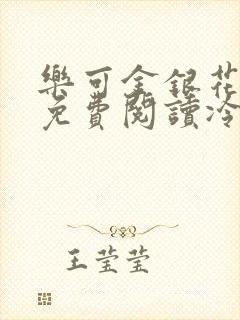 樂可金銀花
免費閱讀冷
王莹莹